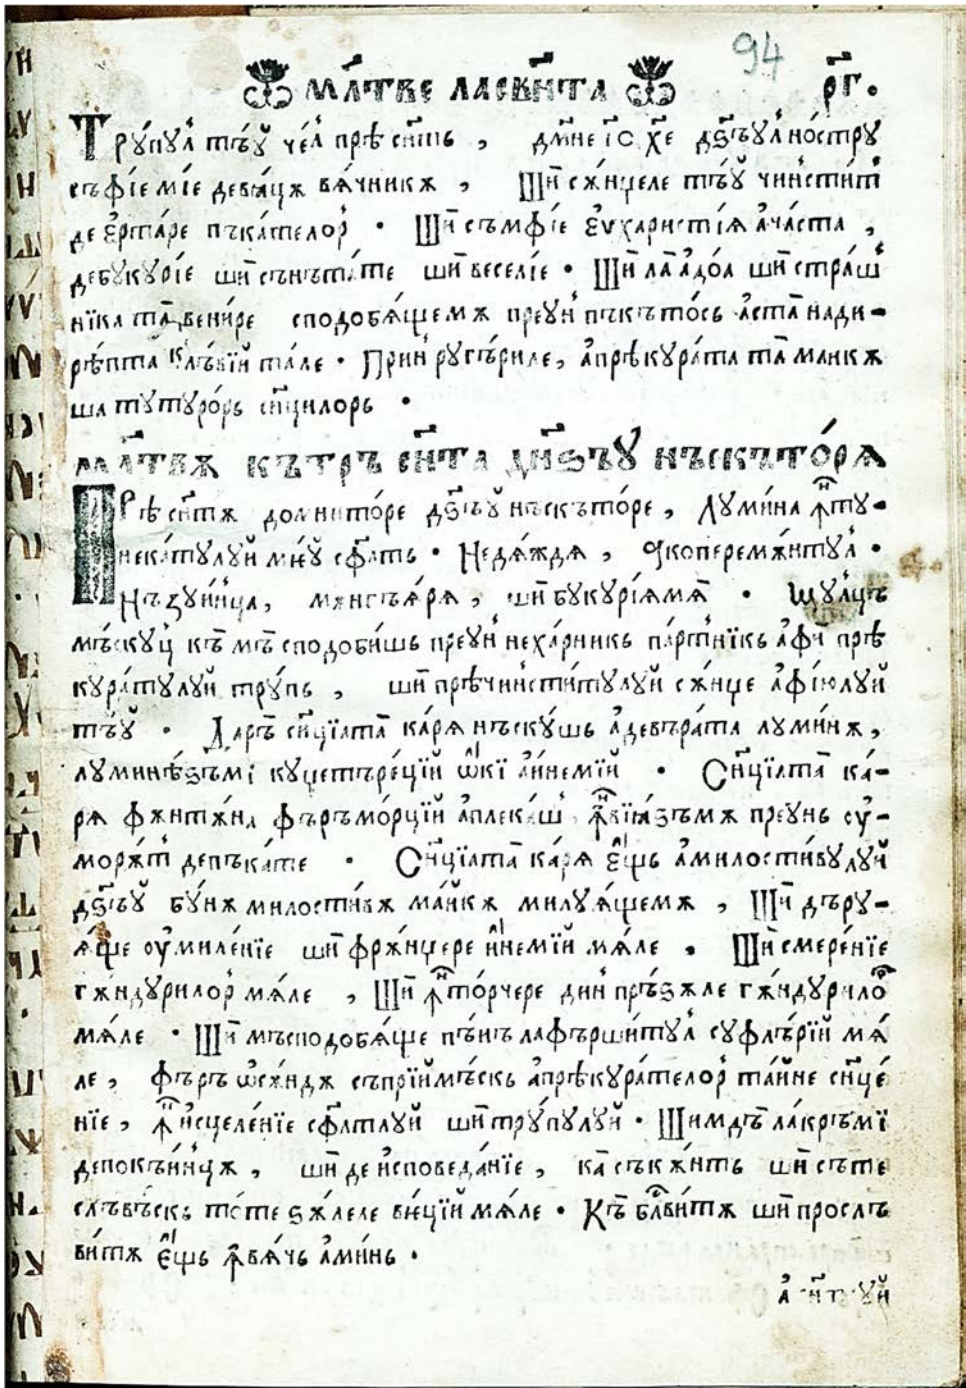 94
мл҃тве ласвн҃та рг҃.
Трꙋ́пꙋл тъ́ꙋ че́л прѣ сн҃ть , дм҃не і҆с х҃е дꙁ҃ъꙋл но́стрꙋ
съфі́е мі́е девꙗ́цѫ вѧ́чникѫ , Шѝ сѫ́нџеле тъ́ꙋ чи́нстит
де е҆рта́ре пъка́телор · Шѝ съмфі́е е҆ѵхаристі́ѧ а҆ча́ста ,
дебꙋкꙋрі́е шѝ сънъта́те шѝ веселі́е · Шѝ ла̀ а҆до́а шѝ стра́ш
ника та̀ вени́ре сподобѧ́щемѫ преꙋ́н пъкъто́сь а҆ста̀ нади-
рѣ́пта слъ́вїй та́ле · Прин рꙋгъ́риле, а҆прѣкꙋра́та та̀ маикѫ
ша тꙋтꙋро́рь сн҃цилорь ·
мл҃твѫ кътръ сн҃та дн҃ꙁъꙋ нъскъто́рѧ
Прѣ сн҃тѫ домнито́ре дꙁ҃ъꙋ нъскъто́ре , Лꙋми́на ꙟ҆тꙋ-
некатꙋлꙋй мїеꙋ сꙋфлть · Недѧ́ждѧ , а҆коперемѫ́нтꙋл ·
Нъꙁꙋи́нца, мѫнгъѧ́рѧ , шѝ бꙋкꙋрі́ѧмѧ̀ · Щꙋлцъ
мъ́скꙋц къ мъ̀ сподоби́шь преꙋ́н неха́рникь па́ртникь а҆фѝ прѣ
кꙋра́тꙋлꙋй трꙋ́пь , шѝ прѣчи́нсти́тꙋлꙋй сѫ́нџе а҆фі́юлꙋй
тъ́ꙋ · Даръ̀ сн҃ціата̀ ка́рѧ нъскꙋ́шь а҆девъра́та лꙋми́нѫ ,
лꙋминѣ́ꙁъмі кꙋџетъре́цїй ѻ҆кі а҆и́немїй · Сн҃ціата̀ ка́-
рѧ фѫнтѫ́на фъръмо́рцїй а҆плека́ш , ꙟ҆вїꙗ́ꙁъмѫ преꙋнь ѹ҆-
морѫ́т депъка́те · Сн҃ціата̀ ка́рѧ є҆щь а҆милости́вꙋлꙋй
дꙁ҃ъꙋ бꙋ́нѫ милости́вѫ ма́йкѫ милꙋѧ́щемѫ , Шѝ дърꙋ-
ѧ́ще ѹ҆миле́нїе шѝ фрѫ́нџере и҆́немїй мѧ́ле , Шѝ смере́нїе
гѫ́ндꙋрилор мѧ́ле , Шѝ ꙟ҆то́рчере дин прѣ́ꙁѫле гѫ́ндꙋрило
мѧ́ле · Шѝ мъсподобѧ́ще пъ́нъ лафърши́тꙋл сꙋфлъ́рїй мѧ́
ле , фъръ ѻ҆сѫ́ндѫ съприймъ́скь а҆прѣкꙋра́телор та́йне сн҃це́
нїе , ꙟ҆исцеле́нїе сф҃лтлꙋй шѝ трꙋ́пꙋлꙋй · Шимдъ̀ ла́кръмі
депокъи́нцѫ , шѝ де и҆споведа́нїе , ка̀ съкѫ́нть шѝ съ́те
слъвъ́скь то́те ꙁѫ́леле вїе́цїй мѧ́ле · Къ̀ бл҃ви́тѫ шѝ прослъ
ви́тѫ є҆щь ꙟ҆вѧ́чь а҆ми́нь ·